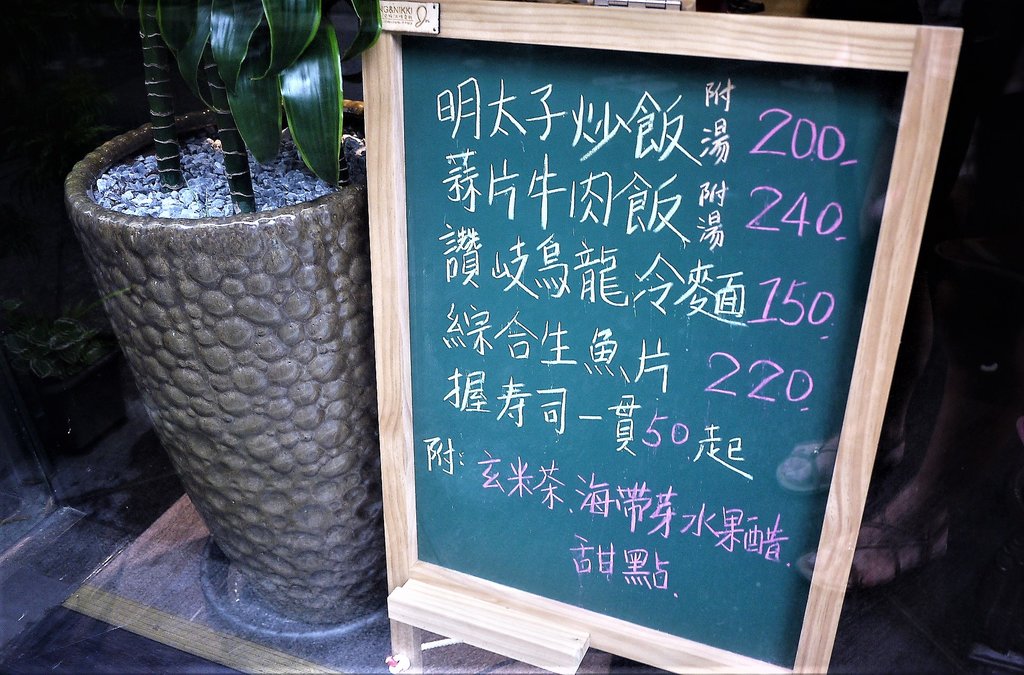 NG&NIKKI
明太子炒飯 附湯 200.
蒜片牛肉飯 附湯 240.
讚岐烏龍冷麵 150.
綜合生魚片 220.
握寿司一貫50.起
附:玄米茶.海帶芽水果醋.
甜點.